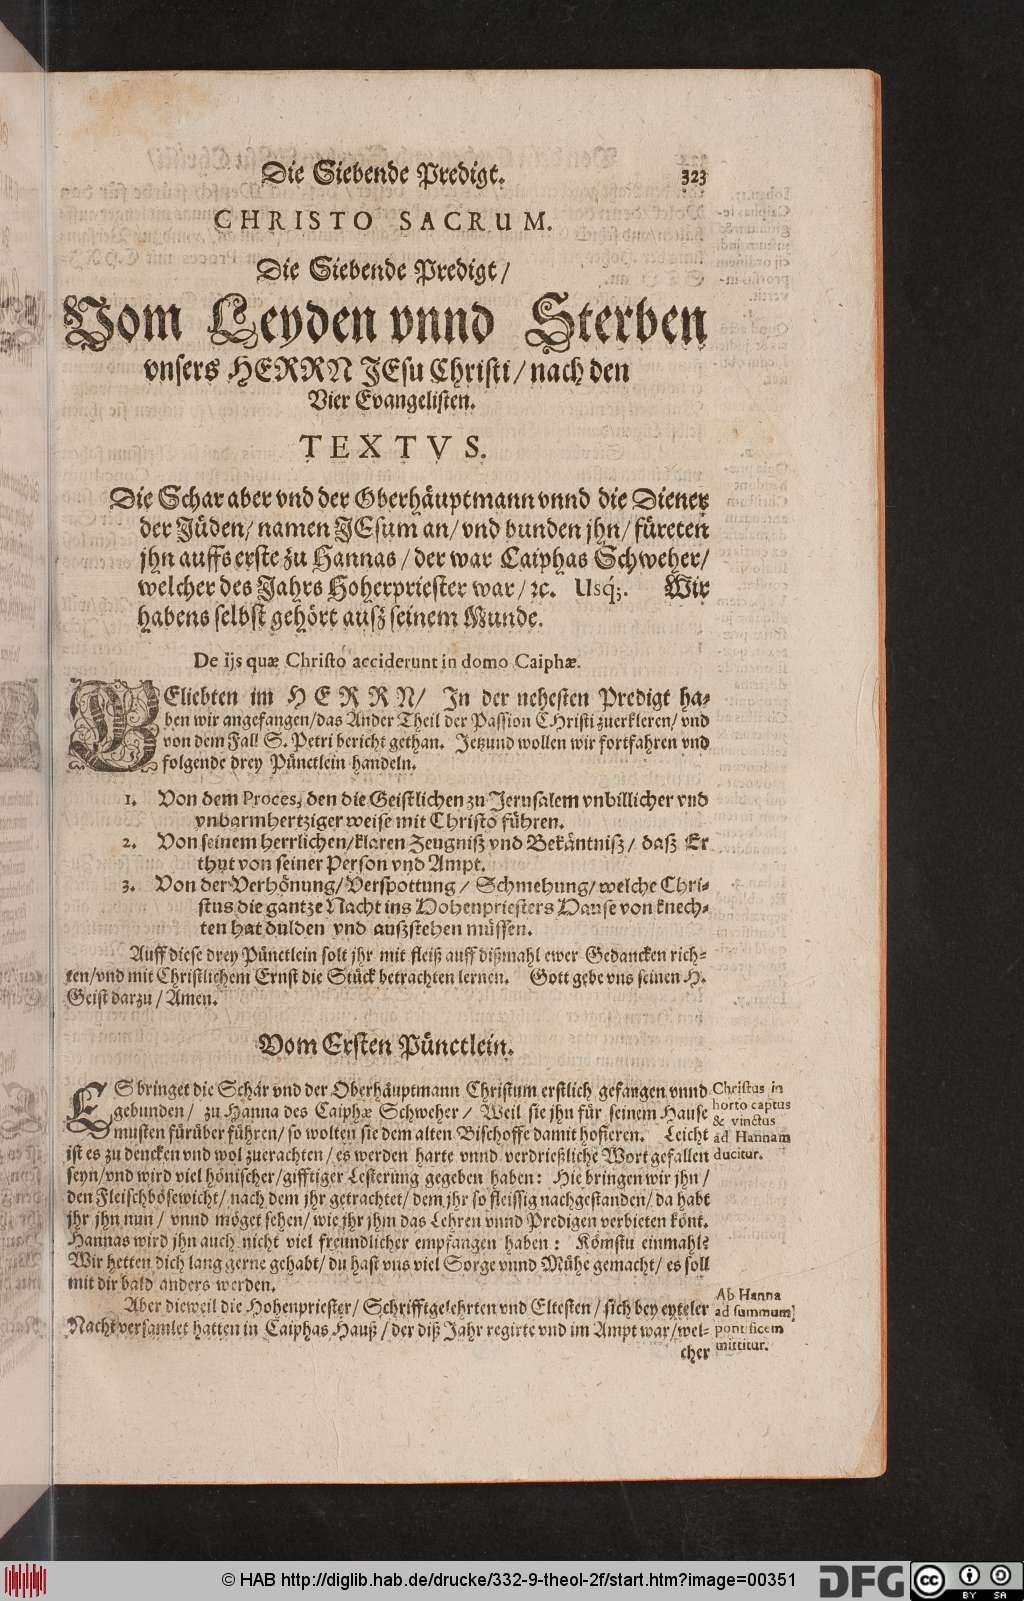 Die Siebende Predigt. 323
CHRISTO SACRUM.
Die Siebende Predigt/
Vom Leyden vnnd Sterben
vnsers HERRN JEsu Christi/ nach den
Vier Evangelisten.
TEXTVS.
Die Schar aber vnd der Oberhäuptmann vnnd die Diener
der Jüden/ namen JEsum an/ vnd bunden jhn/ füreten
jhn auffs erste zu Hannas/ der war Caiphas Schweher/
welcher des Jahrs Hoherpriester war/ ꝛc. Usq́;. Wir
habens selbst gehört auß seinem Munde.
De ijs quæ Christo acciderunt in domo Caiphæ.
GEliebten im HERRN/ In der nehesten Predigt ha-
ben wir angefangen/das Ander Theil der Passion CHristi zuerkleren/ vnd
von dem Fall S. Petri bericht gethan. Jetzund wollen wir fortfahren vnd
folgende drey Pünctlein handeln.
1. Von dem Proces, den die Geistlichen zu Jerusalem vnbillicher vnd
vnbarmhertziger weise mit Christo führen.
2. Von seinem herrlichen/klaren Zeugniß vnd Bekäntniß/ daß Er
thut von seiner Person vnd Ampt.
3. Von der Verhönung/Verspottung/ Schmehung/welche Chri-
stus die gantze Nacht ins Hohenpriesters Hause von knech-
ten hat dulden vnd außstehen müssen.
Auff diese drey Pünctlein solt jhr mit fleiß auff dißmahl ewer Gedancken rich-
ten/vnd mit Christlichem Ernst die Stück betrachten lernen. Gott gebe vns seinen H.
Geist darzu/ Amen.
Vom Ersten Pünctlein.
ES bringet die Schar vnd der Oberhäuptmann Christum erstlich gefangen vnnd
gebunden/ zu Hanna des Caiphæ Schweher/ Weil sie jhn für seinem Hause
musten fürüber führen/ so wolten sie dem alten Bischoffe damit hofieren. Leicht
ist es zu dencken vnd wol zuerachten/ es werden harte vnnd verdrießliche Wort gefallen
seyn/vnd wird viel hönischer/gifftiger Lesterung gegeben haben: Hie bringen wir jhn/
den Fleischbösewicht/ nach dem jhr getrachtet/ dem jhr so fleissig nachgestanden/ da habt
jhr jhn nun/ vnnd möget sehen/ wie jhr jhm das Lehren vnnd Predigen verbieten könt.
Hannas wird jhn auch nicht viel freundlicher empfangen haben: Kömstu einmahl?
Wir hetten dich lang gerne gehabt/ du hast vns viel Sorge vnnd Mühe gemacht/ es soll
mit dir bald anders werden.
Aber dieweil die Hohenpriester/ Schrifftgelehrten vnd Eltesten/ sich bey eyteler
Nacht versamlet hatten in Caiphas Hauß/ der diß Jahr regirte vnd im Ampt war/wel-
cher
Christus in
horto captus
& vinctus
ad Hannam
ducitur.
Ab Hanna
ad summum
pontificem
mittitur.
© HAB http://diglib.hab.de/drucke/332-9-theol-2f/start.htm?image=00351
DFG
cc BY SA